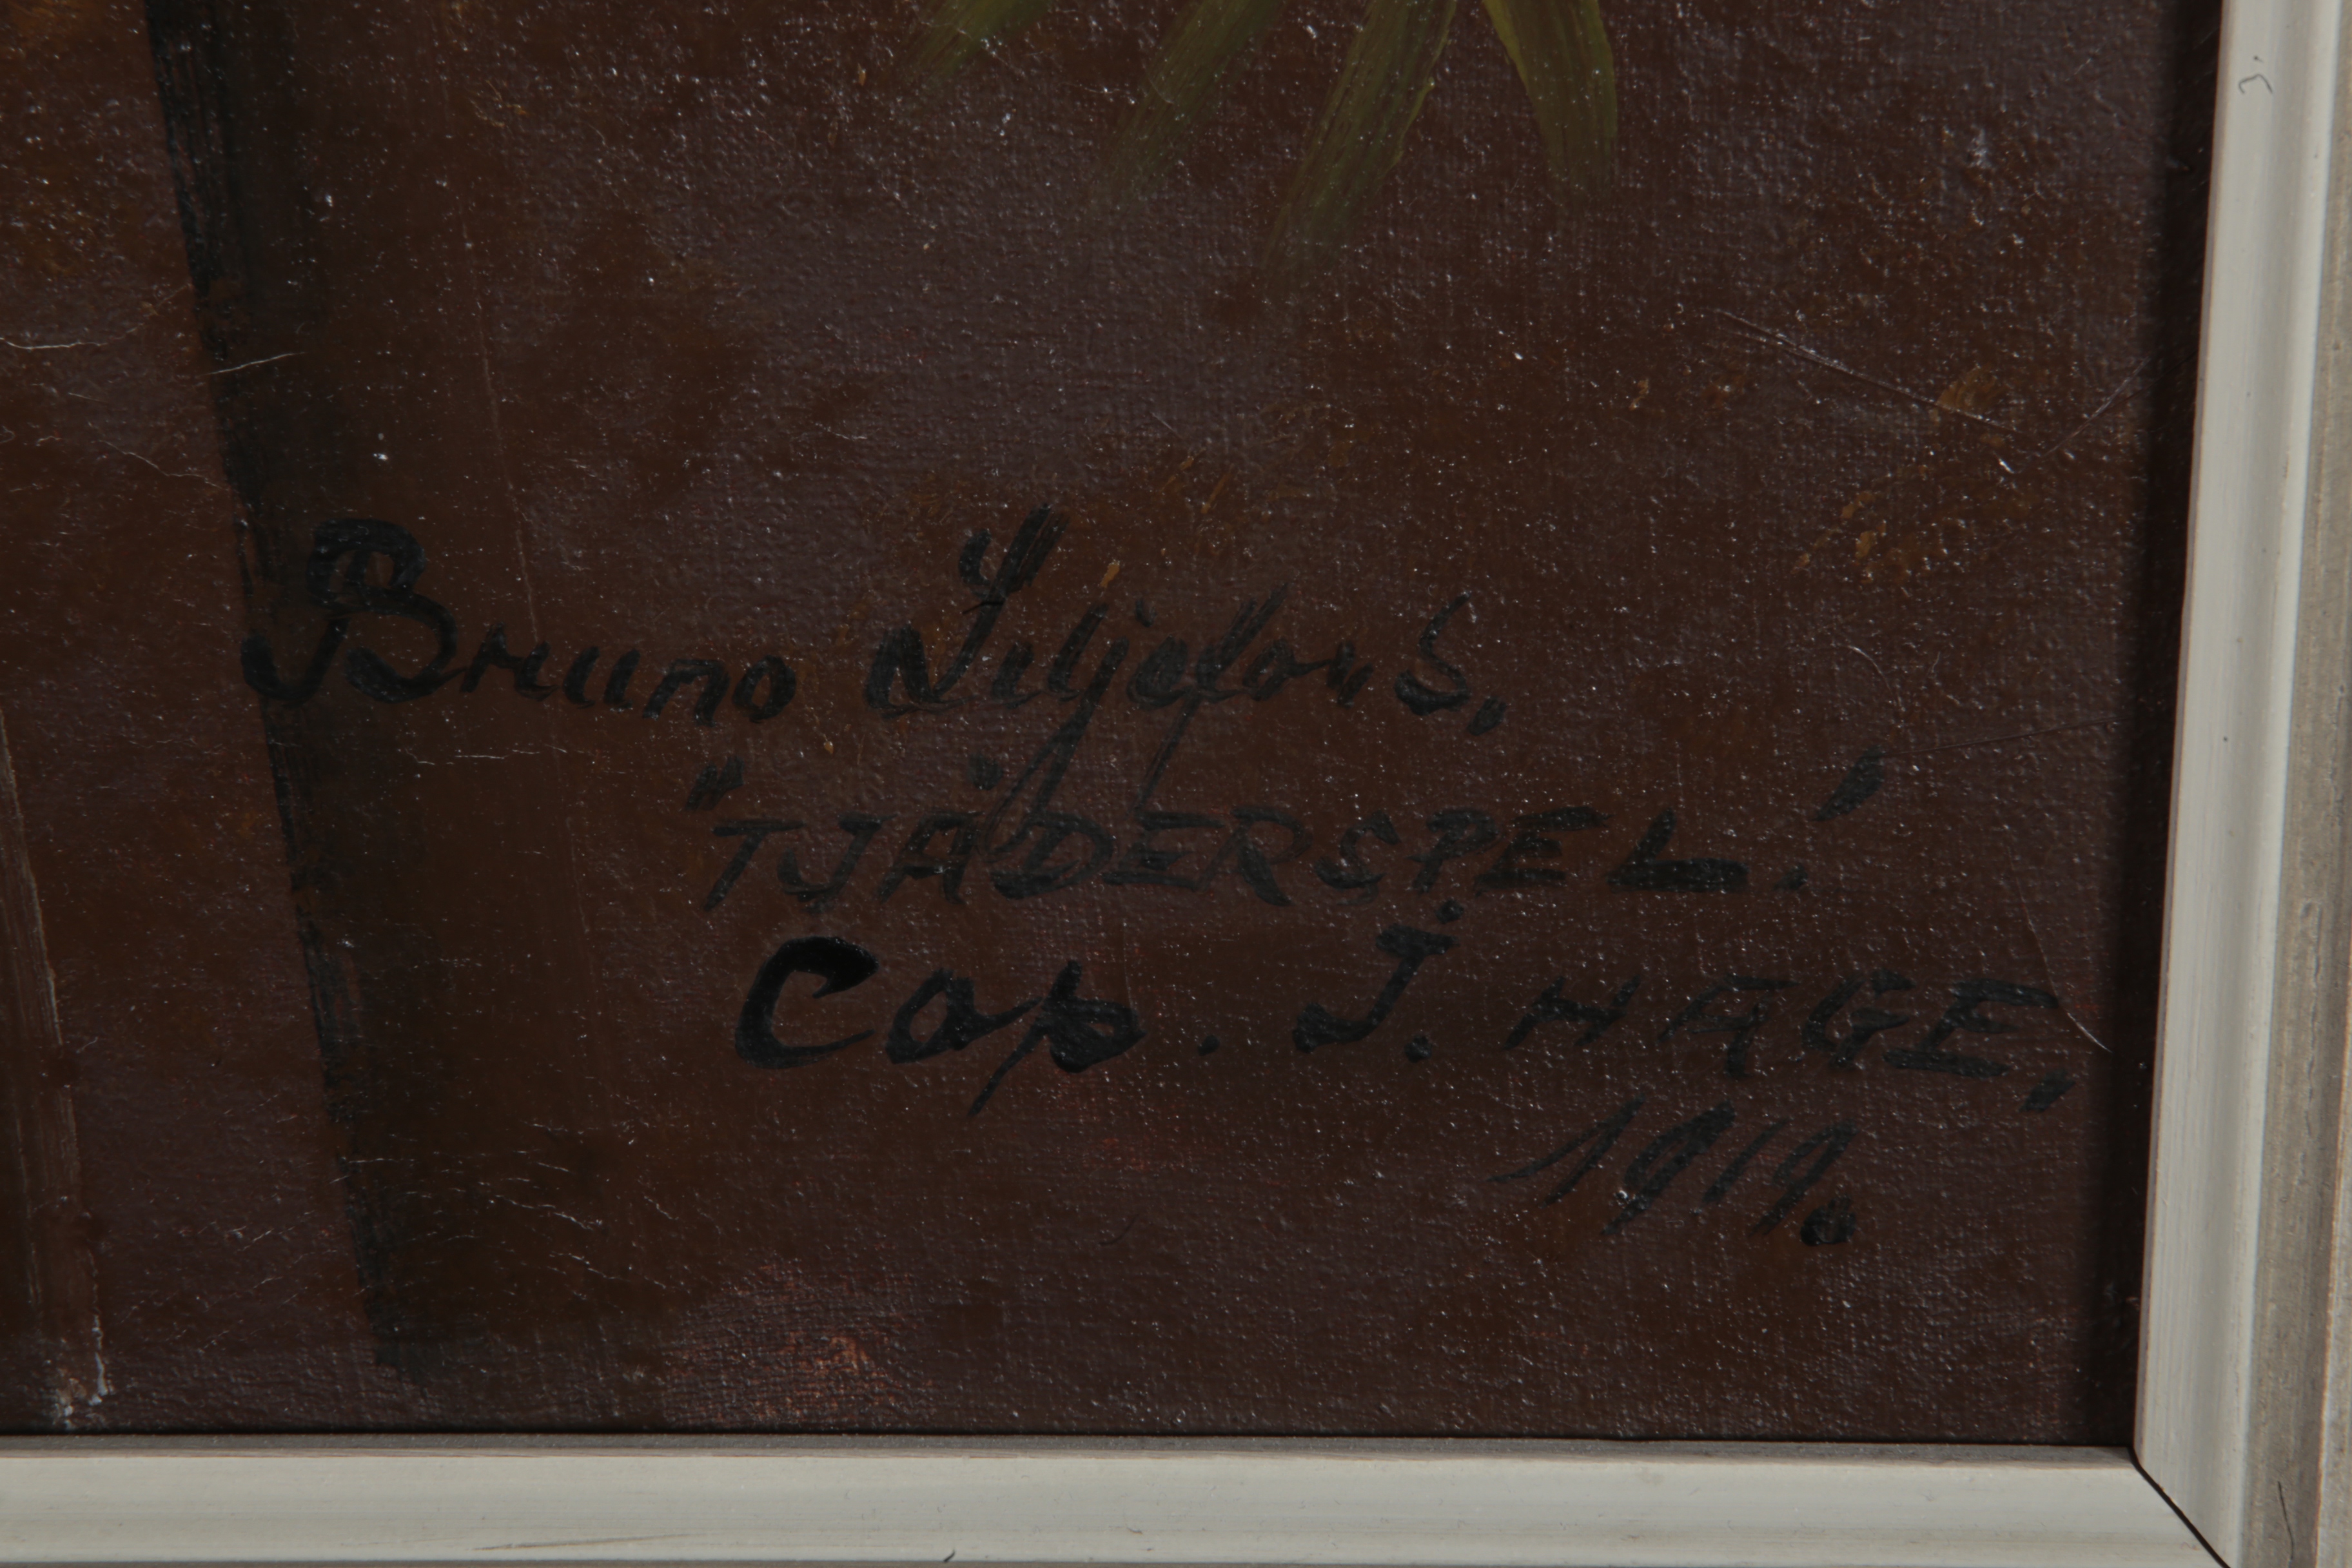 Bruno Liljefors,
"TJÄDERSPEL."
Cop. J. HAGE,
1919.